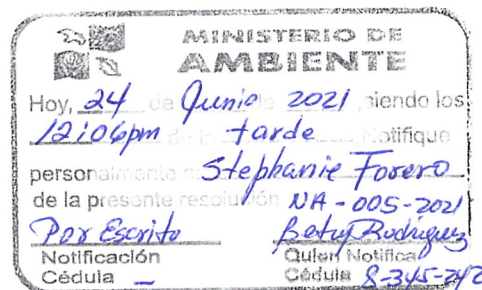 MINISTERIO DE
AMBIENTE
Hoy, 24 de Junio de 2021 siendo los
12:06pm de la tarde Notifique
personalmente a Stephanie Forero
de la presente resolución NA-005-2021
Por Escrito Betsy Rodríguez
Notificación Quien Notifica
Cédula _ Cédula 8-345-242